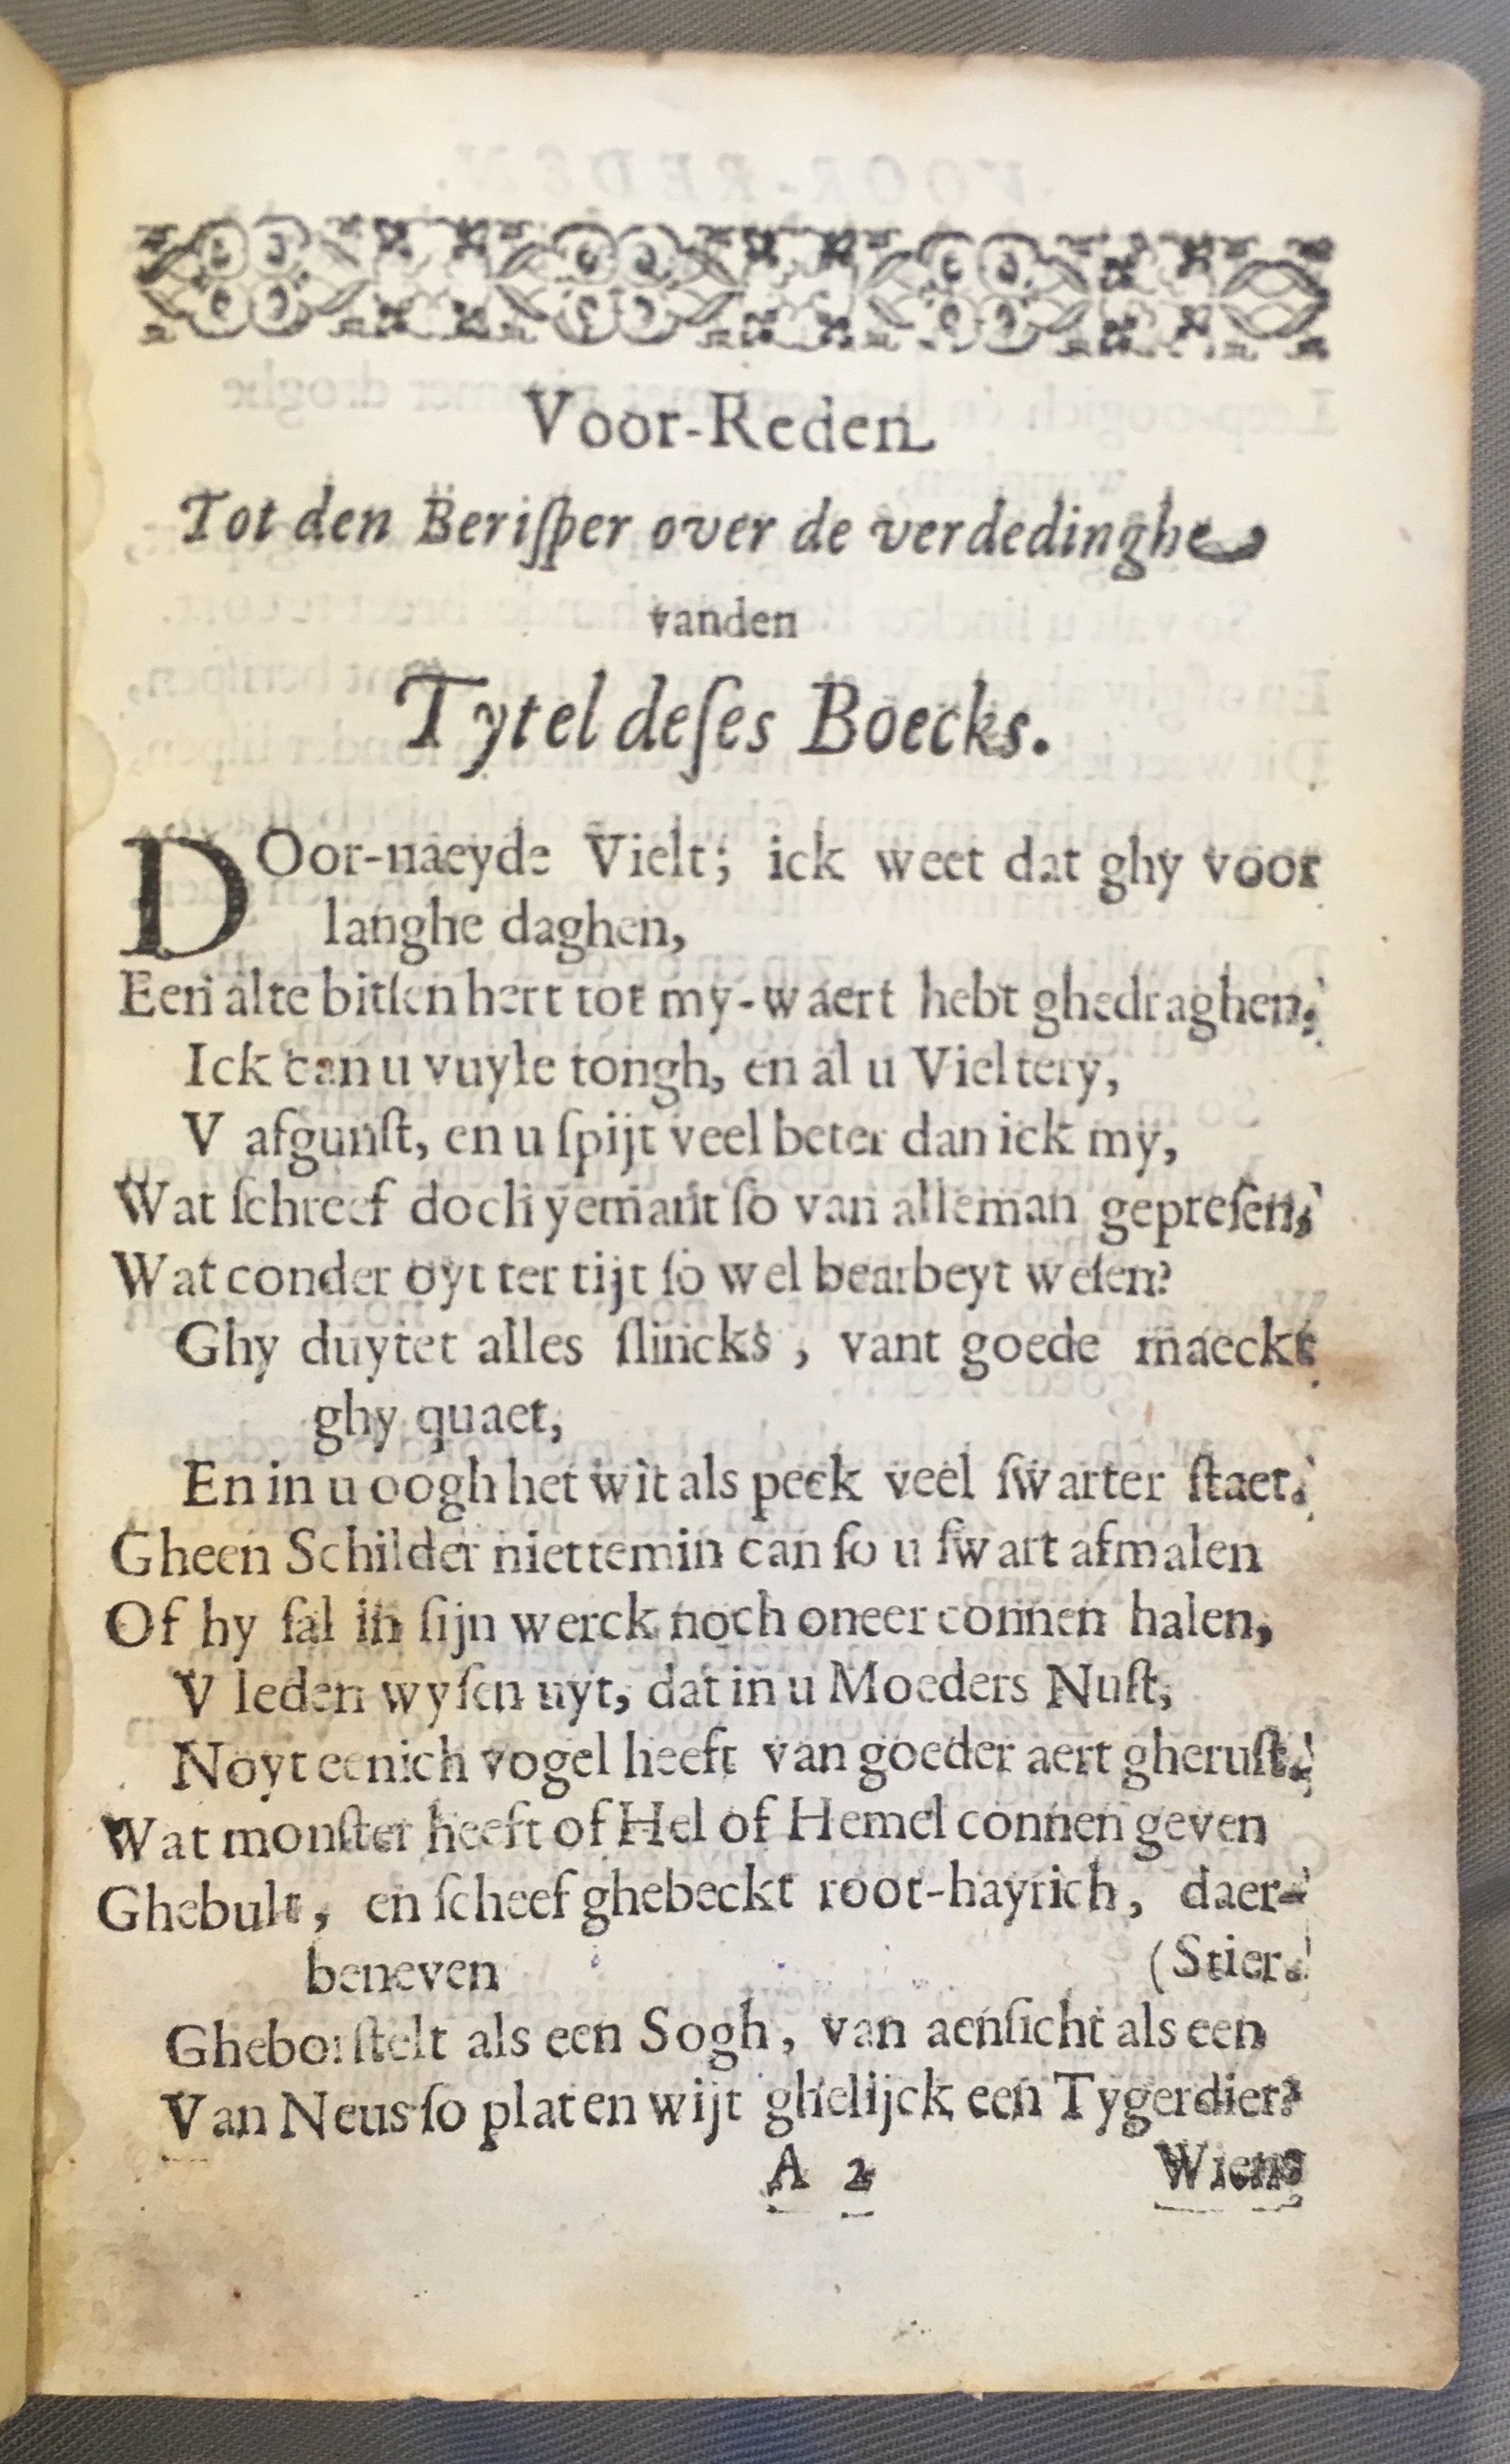 Voor-Reden
Tot den Beriſper over de verdedinghe
vanden
Tytel deſes Boecks.
DOor-naeyde Vielt; ick weet dat ghy voor
langhe daghen,
Een al te bitſen hert tot my-waert hebt ghedraghen,
Ick can u vuyle tongh, en al u Vieltery,
V afgunſt, en u ſpijt veel beter dan ick my,
Wat ſchreef doch yemant ſo van alleman gepreſen,
Wat conder oyt ter tijt ſo wel bearbeyt weſen?
Ghy duytet alles ſlincks, vant goede maeckt
ghy quaet,
En in u oogh het wit als peck veel ſwarter ſtaet.
Gheen Schilder niettemin can ſo u ſwart afmalen
Of hy ſal in ſijn werck noch oneer connen halen,
V leden wyſen uyt, dat in u Moeders Nuſt,
Noyt eenich vogel heeft van goeder aert gheruſt.
Wat monſter heeft of Hel of Hemel connen geven
Ghebult, en ſcheef ghebeckt root-hayrich, daer-
beneven (Stier.
Gheborſtelt als een Sogh, van aenſicht als een
Van Neus ſo plat en wijt ghelijck een Tygerdier?
A 2 Wiens